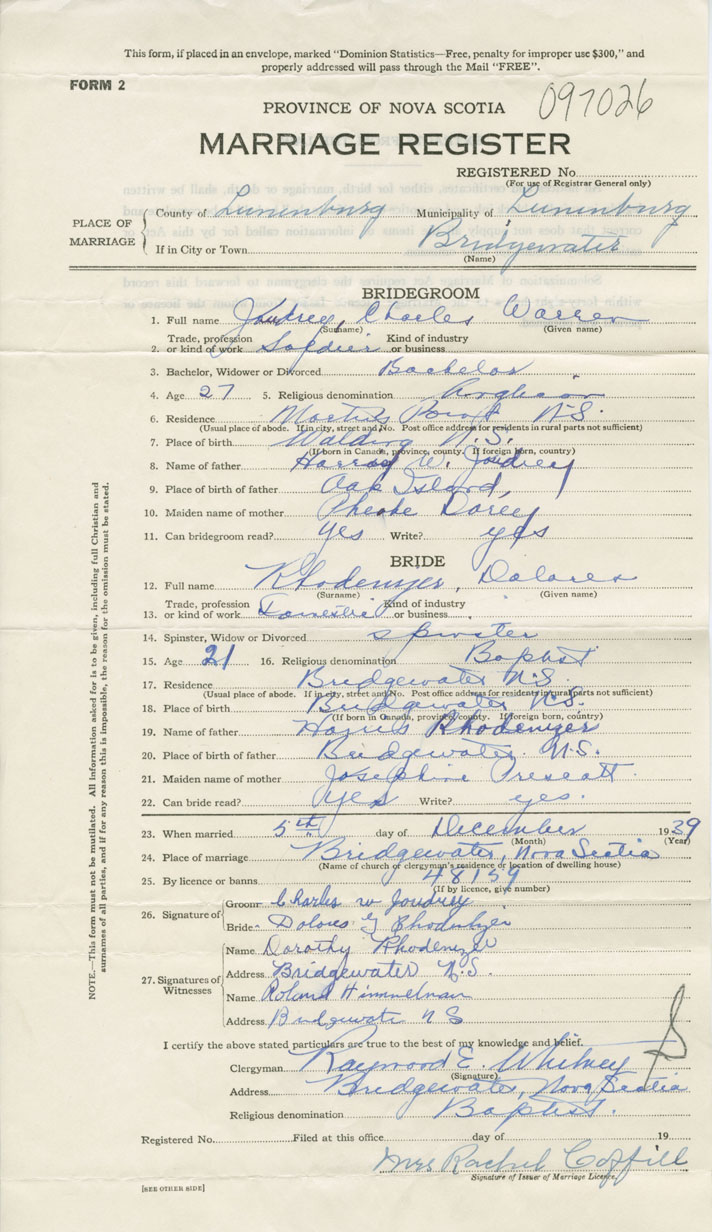 This form, if placed in an envelope, marked "Dominion Statistics—Free, penalty for improper use $300," and
properly addressed will pass through the Mail "FREE".
FORM 2
097026
PROVINCE OF NOVA SCOTIA
MARRIAGE REGISTER
REGISTERED No.
(For use of Registrar General only)
PLACE OF MARRIAGE
County of Lunenburg Municipality of Lunenburg
If in City or Town Bridgewater
(Name)
BRIDEGROOM
1. Full name Joudrey, Charles Warren
(Surname) (Given name)
Trade, profession Kind of industry
2. or kind of work Soldier or business
3. Bachelor, Widower or Divorced Bachelor
4. Age 27 5. Religious denomination Anglican
6. Residence Martins Point N.S.
(Usual place of abode. If in city, street and No. Post office address for residents in rural parts not sufficient)
7. Place of birth N.S.
(If born in Canada, province, county. If foreign born, country)
8. Name of father W. Joudrey
9. Place of birth of father Oak Island,
10. Maiden name of mother Dorey
11. Can bridegroom read? yes Write? yes
BRIDE
12. Full name Rhodenizer, Dolores
(Surname) (Given name)
Trade, profession Kind of industry
13. or kind of work Domestic or business
14. Spinster, Widow or Divorced spinster
15. Age 21 16. Religious denomination Baptist
17. Residence Bridgewater N.S.
(Usual place of abode. If in city, street and No. Post office address for residents in rural parts not sufficient)
18. Place of birth Bridgewater N.S.
(If born in Canada, province, county. If foreign born, country)
19. Name of father Rhodenizer
20. Place of birth of father Bridgewater N.S.
21. Maiden name of mother Josephine Prescott
22. Can bride read? yes Write? yes.
23. When married 5th day of December 1939
(Month) (Year)
24. Place of marriage Bridgewater, Nova Scotia
(Name of church or clergyman's residence or location of dwelling house)
25. By licence or banns 48159
(If by licence, give number)
26. Signature of
Groom Charles W Joudrey
Bride Dolores Rhodenizer
27. Signatures of Witnesses
Name Dorothy Rhodenizer
Address Bridgewater N.S.
Name Roland Himmelman
Address Bridgewater N S
I certify the above stated particulars are true to the best of my knowledge and belief.
Clergyman Raymond E. Whitney
(Signature)
Address Bridgewater, Nova Scotia
Religious denomination Baptist.
Registered No. Filed at this office day of 19
Mrs Rachel Coffill
Signature of Issuer of Marriage Licence.
[SEE OTHER SIDE]
NOTE.—This form must not be mutilated. All information asked for is to be given, including full Christian and
surnames of all parties, and if for any reason this is impossible, the reason for the omission must be stated.